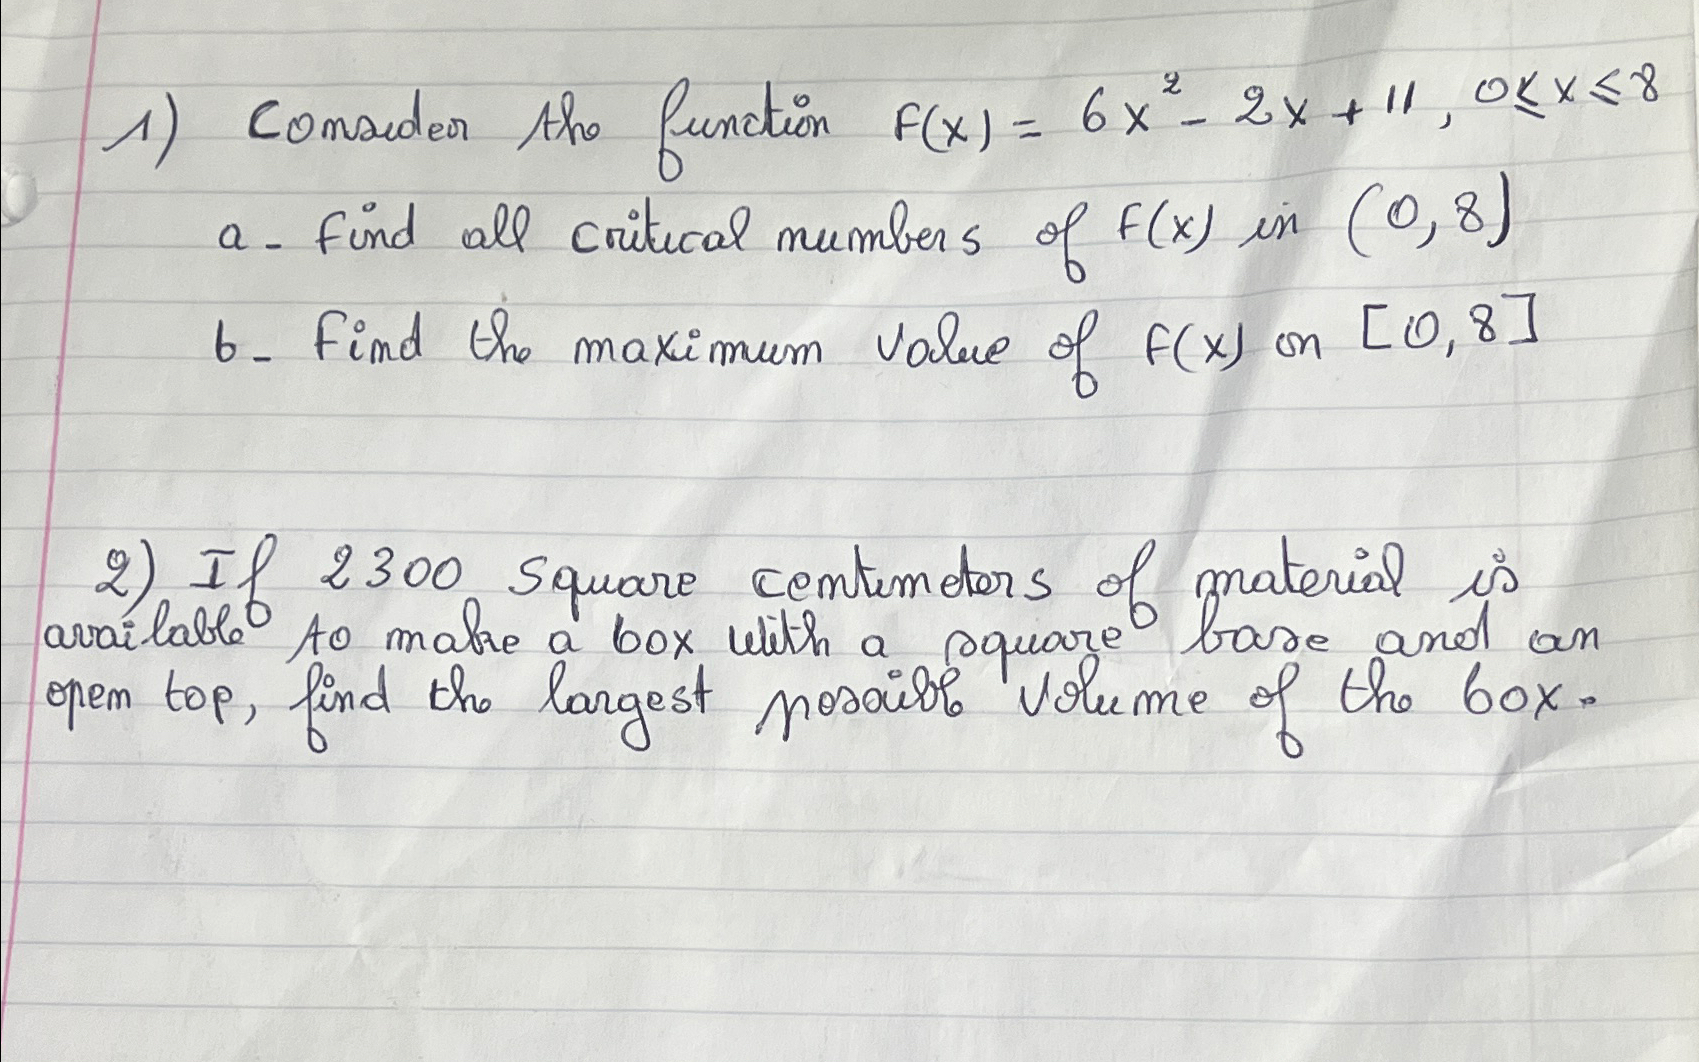 1) Consider the function f(x) = 6x² - 2x + 11, 0 ≤ x ≤ 8
a - find all critical numbers of f(x) in (0, 8)
b - find the maximum value of f(x) on [0, 8]
2) If 2300 square centimeters of material is
available to make a box with a square base and an
open top, find the largest possible volume of the box.